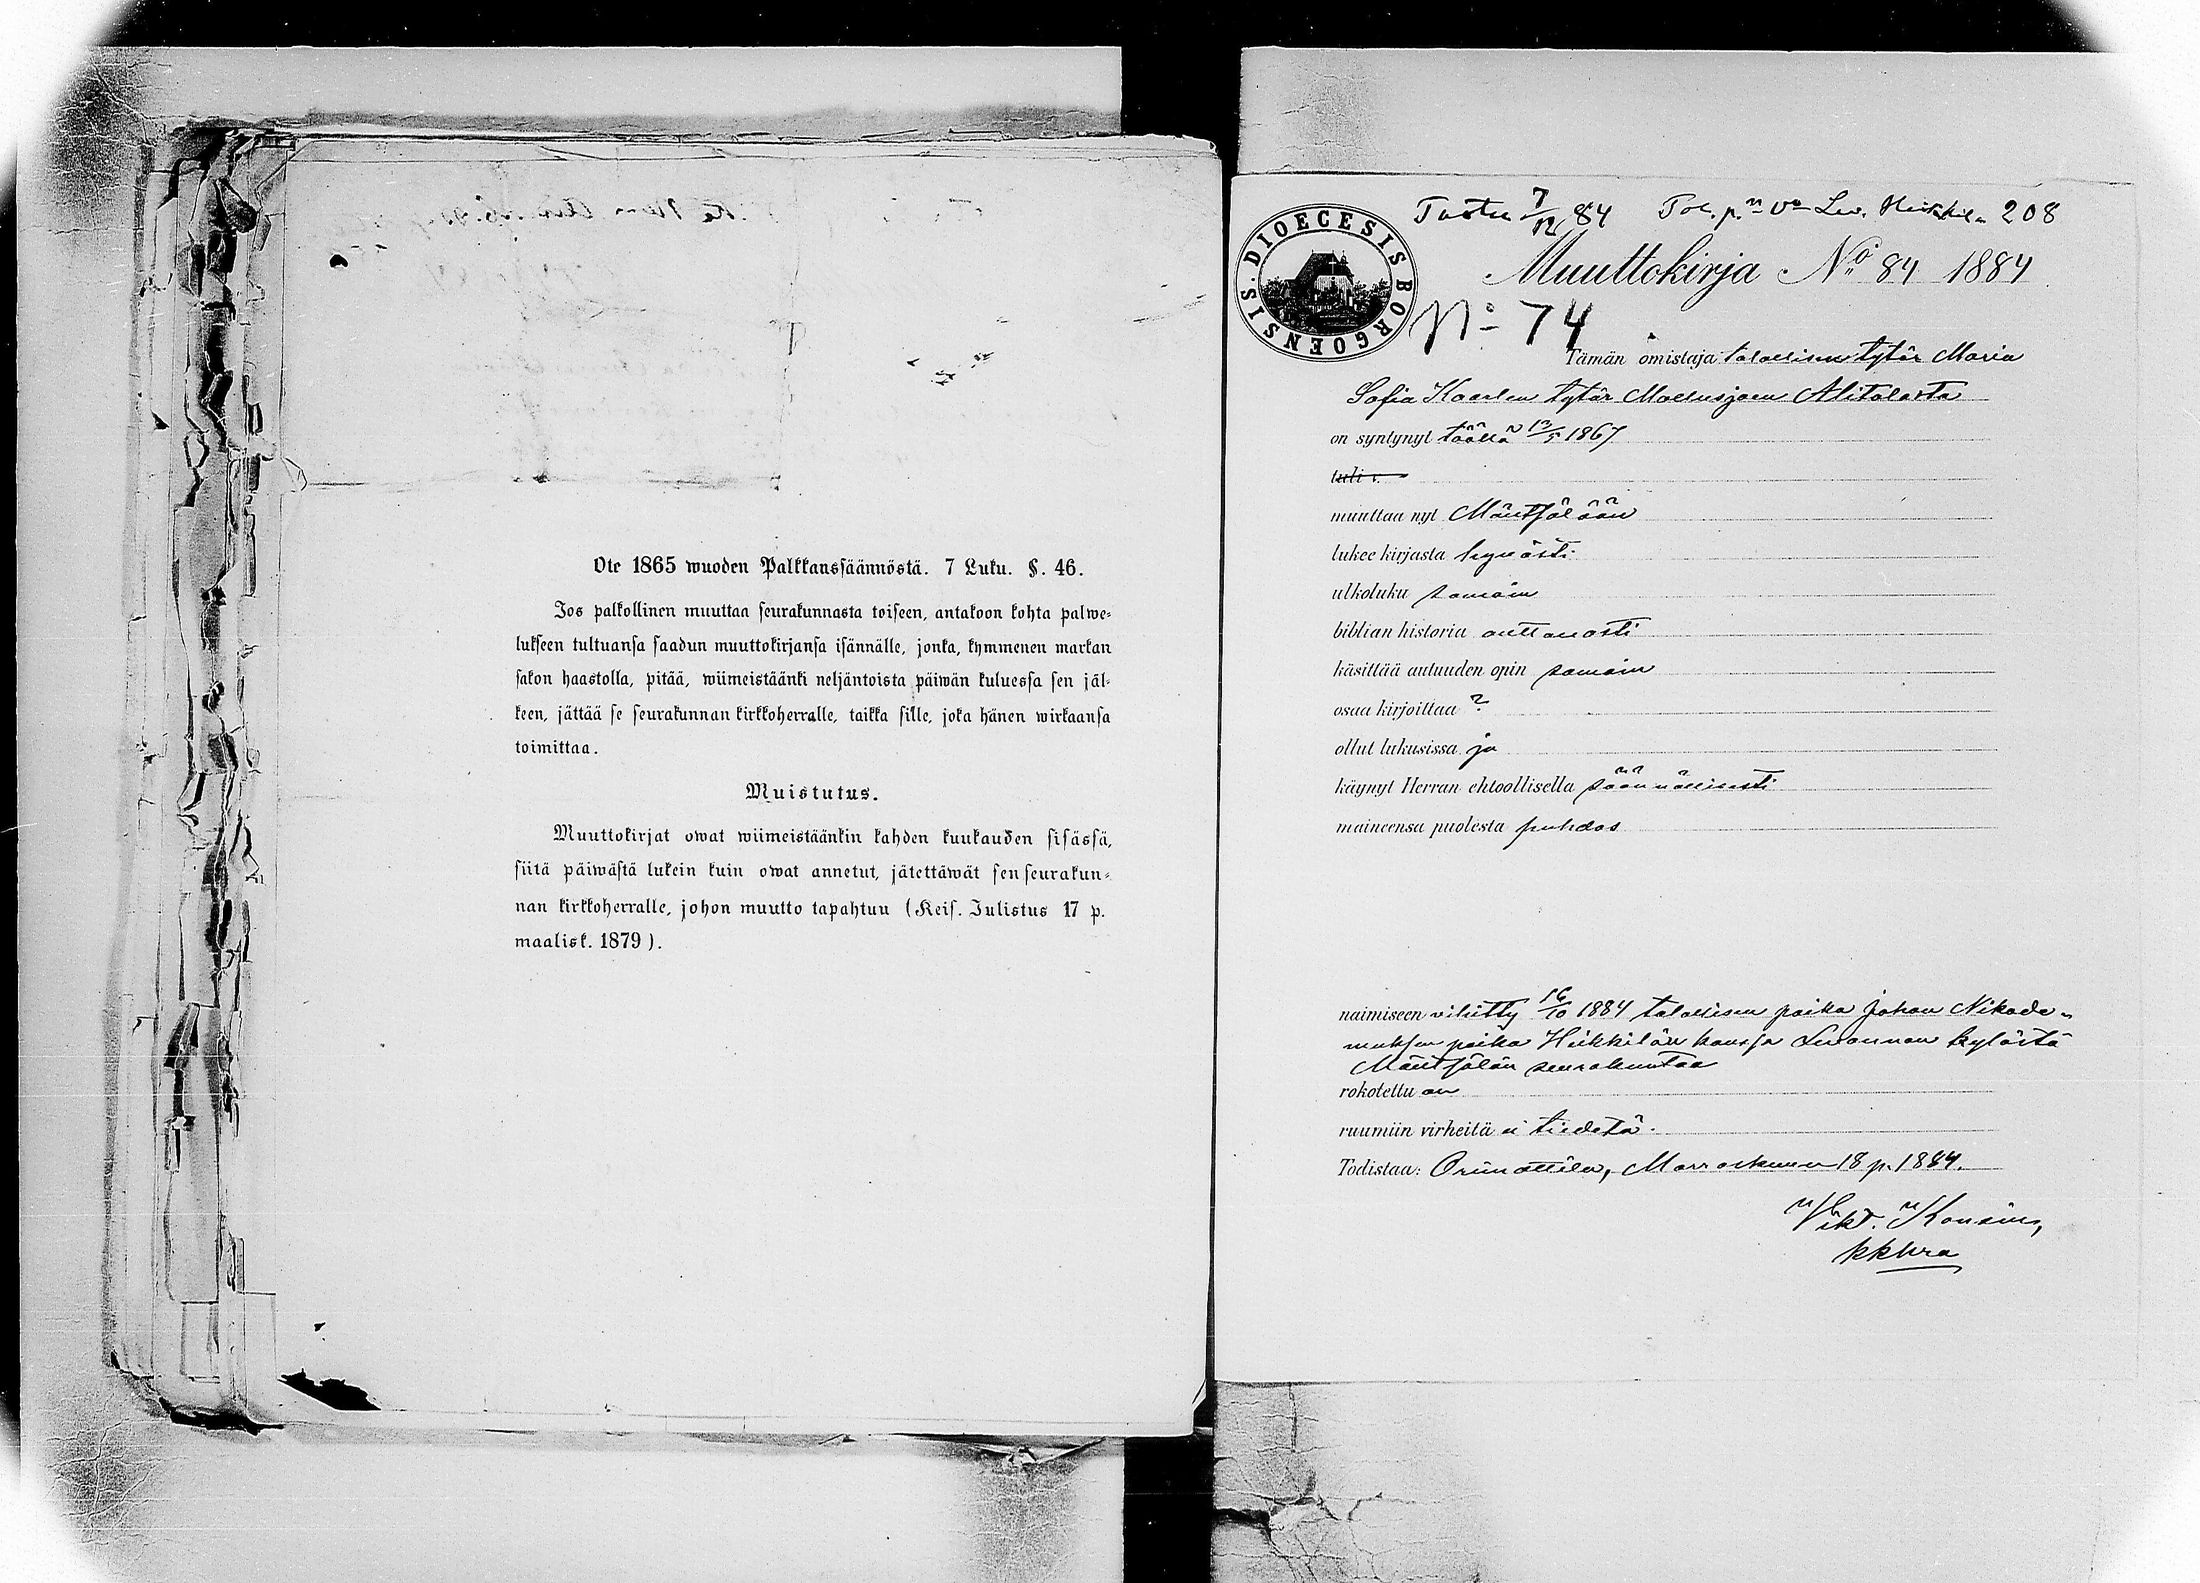 Ote 1865 wuoden Palkkanssäännöstä. 7 Luku. §. 46.
Jos palkollinen muuttaa seurakunnasta toiseen, antakoon kohta palwe-
lukseen tultuansa saadun muuttokirjansa isännälle, jonka, kymmenen markan
sakon haastolla, pitää, wiimeistäänki neljäntoista päiwän kuluessa sen jäl-
keen, jättää se seurakunnan kirkkoherralle, taikka sille, joka hänen wirkaansa
toimittaa.
Muistutus.
Muuttokirjat owat wiimeistäänkin kahden kuukauden sisässä,
siitä päiwästä lukein kuin owat annetut, jätettäwät sen seurakun-
nan kirkkoherralle, johon muutto tapahtuu (Keis. Julistus 17 p.
maalisk. 1879).
7/12 84 208
DIOECESIS BORGOENSIS.
Muuttokirja No 84 1884
No 74
Tämän omistaja talollisen tytär Maria
Sofia Kaarlen tytär Mallusjoen Alitalosta
on syntynyt täällä 1867
tuli
muuttaa nyt Mäntsälään
lukee kirjasta hyvästi
ulkoluku samoin
biblian historia auttavasti
käsittää autuuden opin samoin
osaa kirjoittaa ?
ollut lukusissa ja
käynyt Herran ehtoollisella säännöllisesti
maineensa puolesta puhdas
naimiseen vihitty 16/10 1884 talollisen poika Johan Nikode-
muksen poika Heikkilän kanssa Levannon kylästä
Mäntsälän seurakuntaa
rokotettu on
ruumiin virheitä ei tiedetä.
Todistaa: Orimattila, Marraskuun 18 p. 1884.
Vikt. Konsin,
kkhra